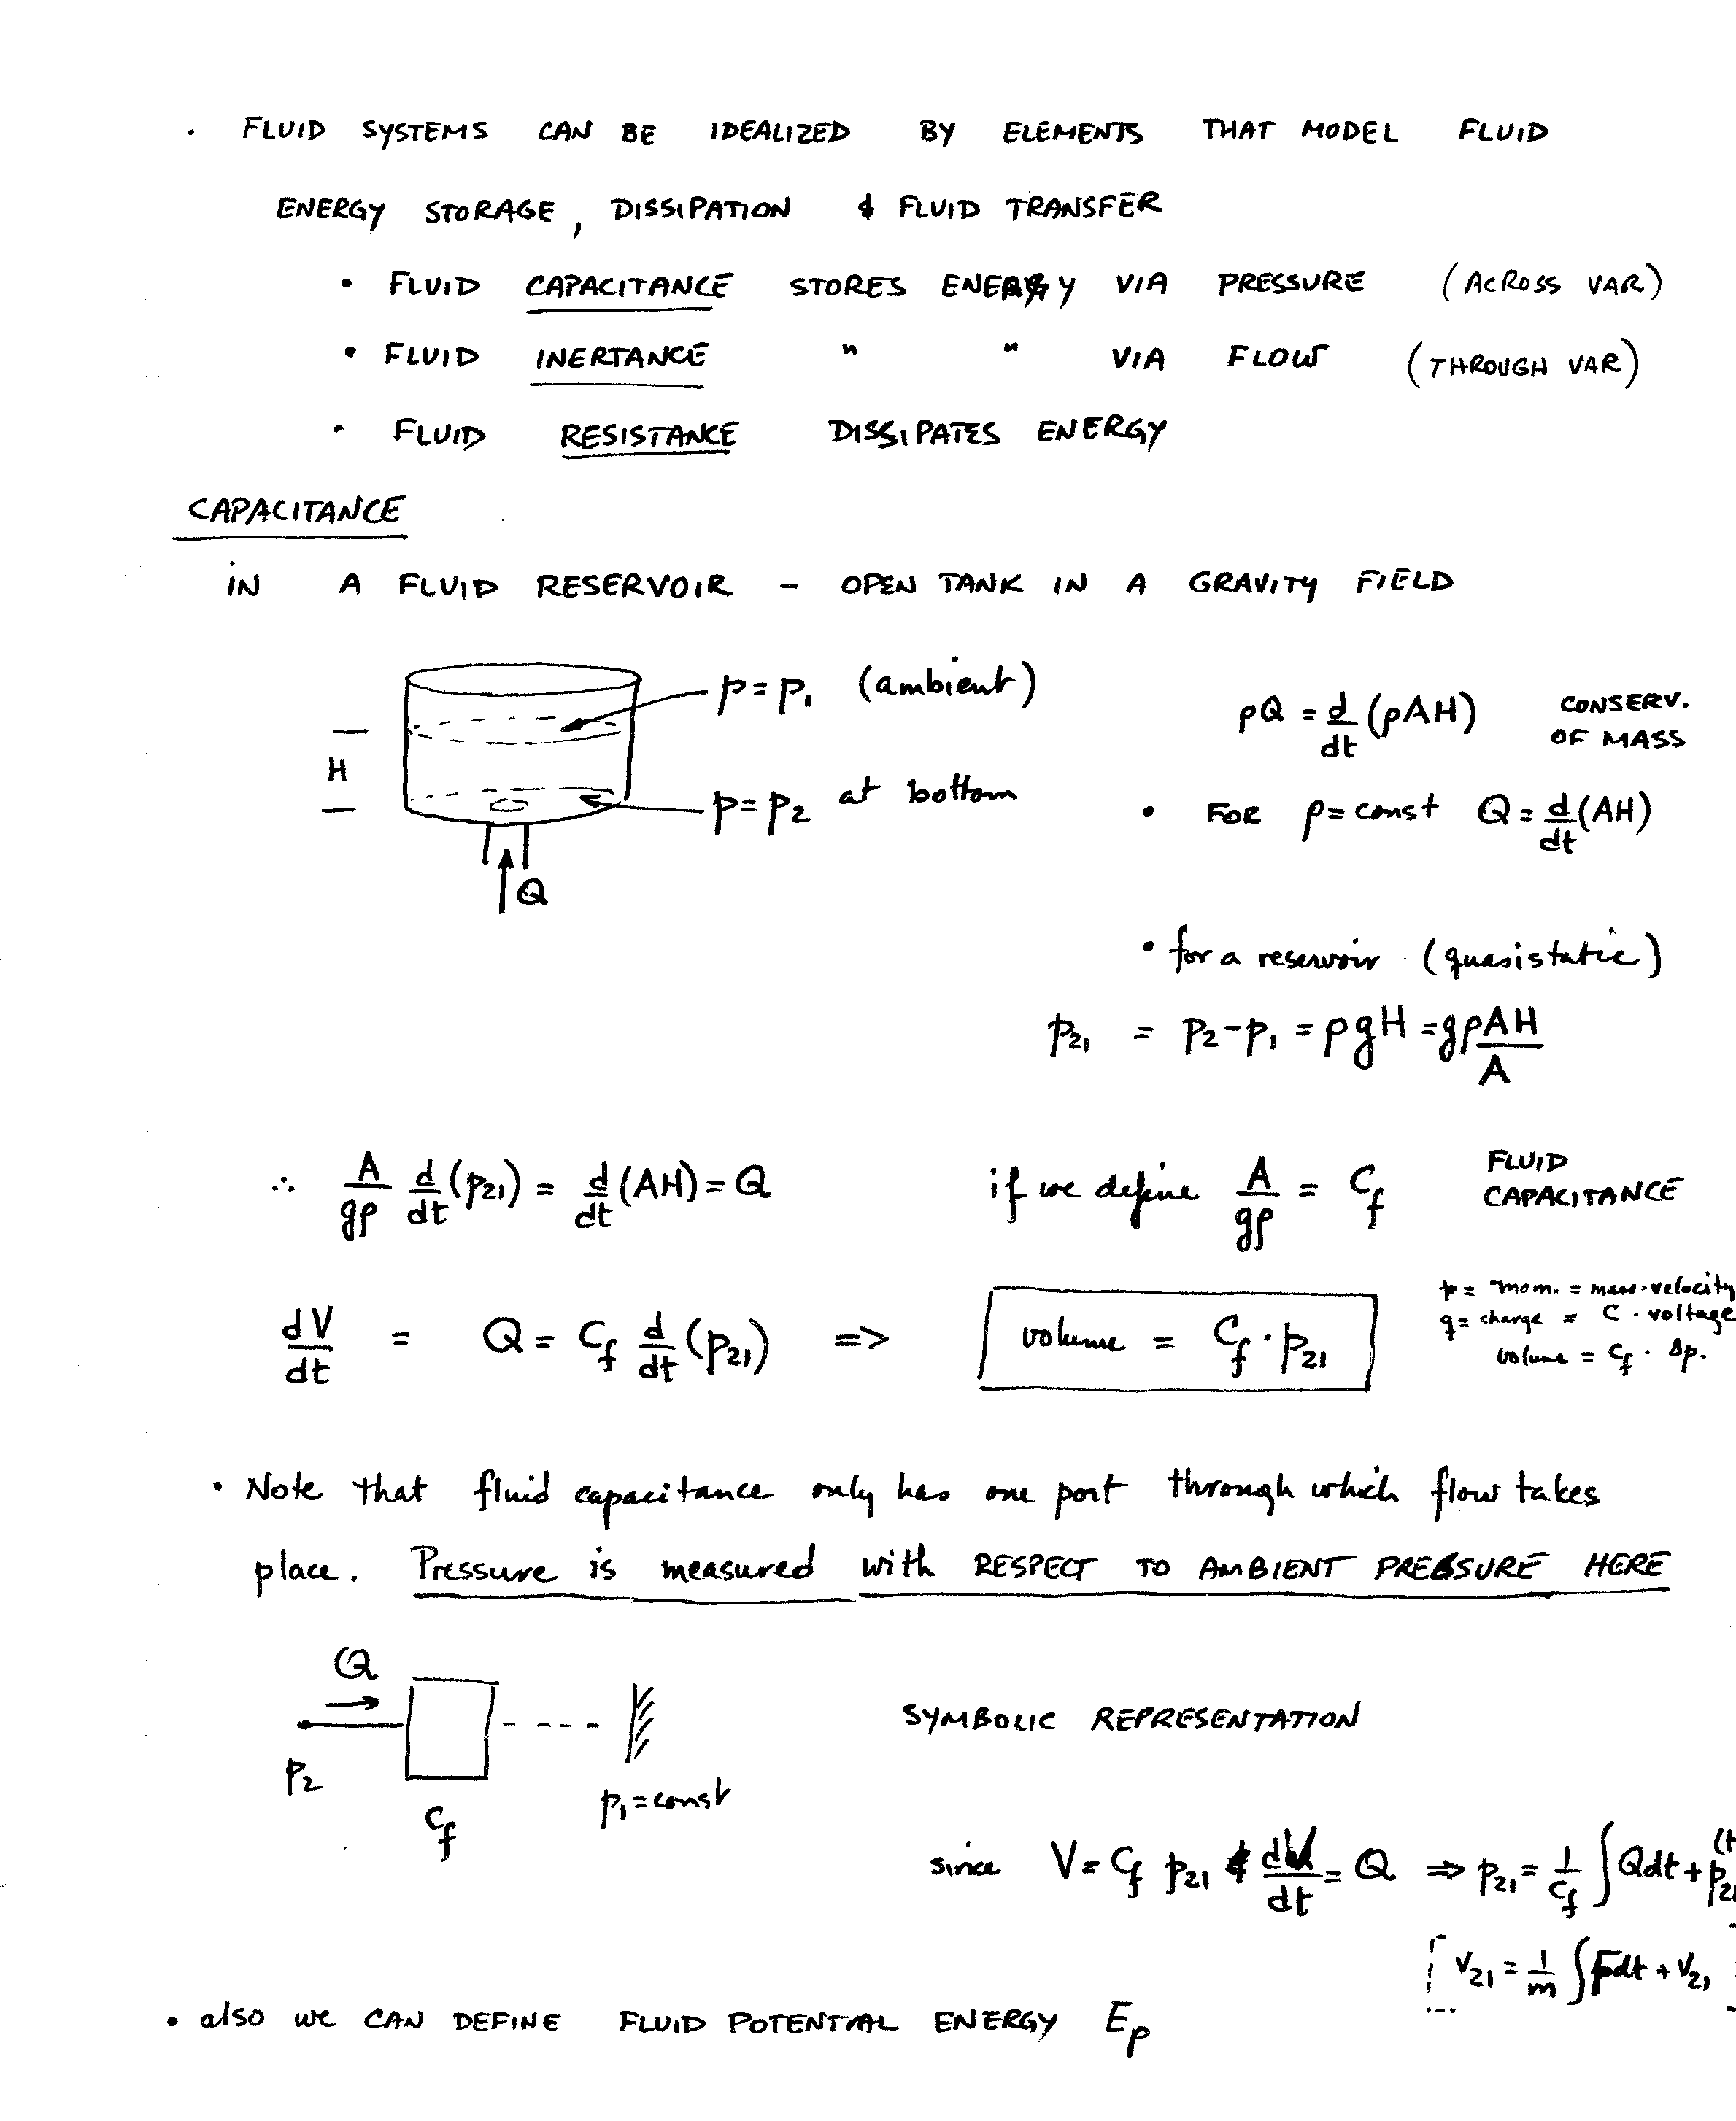 · FLUID SYSTEMS CAN BE IDEALIZED BY ELEMENTS THAT MODEL FLUID
ENERGY STORAGE, DISSIPATION & FLUID TRANSFER
• FLUID CAPACITANCE STORES ENERGY VIA PRESSURE (ACROSS VAR)
• FLUID INERTANCE " " VIA FLOW (THROUGH VAR)
• FLUID RESISTANCE DISSIPATES ENERGY
CAPACITANCE
IN A FLUID RESERVOIR - OPEN TANK IN A GRAVITY FIELD
p = p₁ (ambient)
H
p = p₂ at bottom
Q
ρQ = d/dt (ρAH) CONSERV. OF MASS
• FOR ρ = const Q = d/dt (AH)
• for a reservoir (quasistatic)
p₂₁ = p₂ - p₁ = ρgH = gρAH/A
∴ A/gρ d/dt (p₂₁) = d/dt (AH) = Q if we define A/gρ = C_f FLUID CAPACITANCE
dV/dt = Q = C_f d/dt (p₂₁) => volume = C_f · p₂₁
p = mom. = mass·velocity
q = charge = C · voltage
volume = C_f · Δp.
• Note that fluid capacitance only has one port through which flow takes
place. Pressure is measured with RESPECT TO AMBIENT PRESSURE HERE
Q
p₂
C_f
p₁ = const
SYMBOLIC REPRESENTATION
since V = C_f p₂₁ & dV/dt = Q ⇒ p₂₁ = 1/C_f ∫Qdt + p₂₁
v₂₁ = 1/m ∫Fdt + v₂₁
• also we CAN DEFINE FLUID POTENTIAL ENERGY E_p